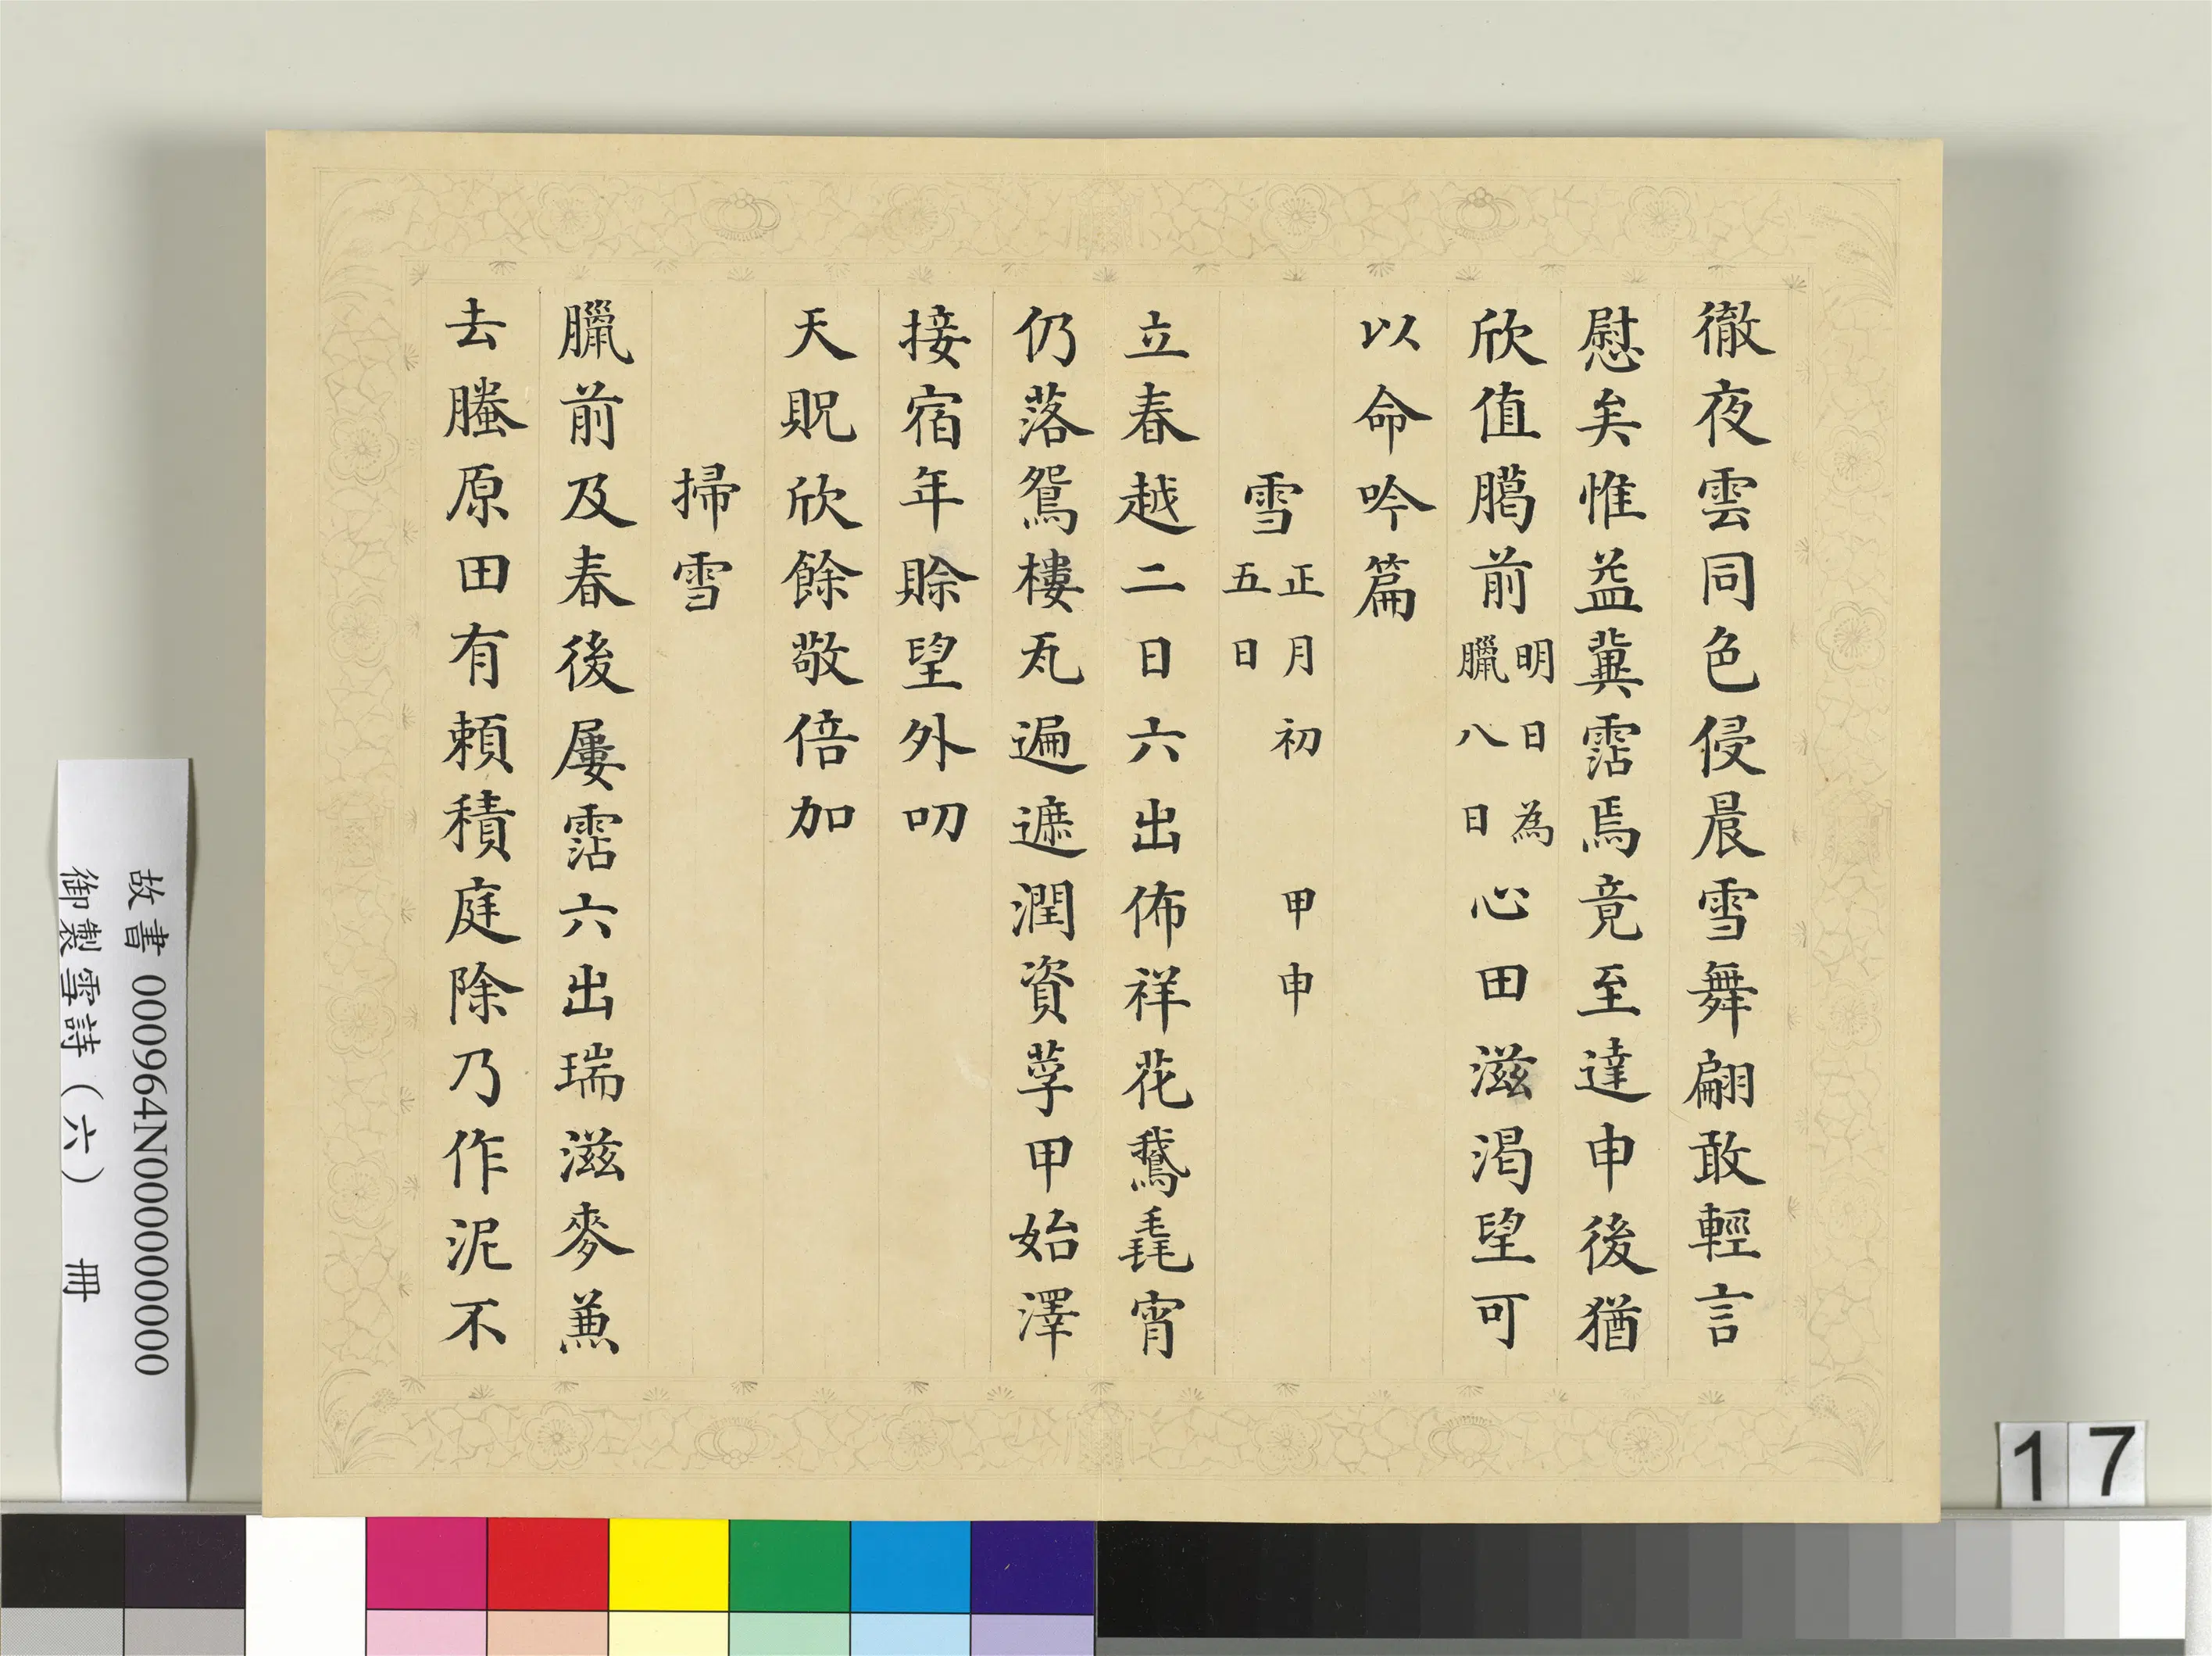 徹夜雲同色侵晨雪舞翩敢輕言
慰矣惟益冀霑焉竟至達申後猶
欣值臈前明日為臘八日心田滋渴望可
以命吟篇
雪正月初五日 甲申
立春越二日六出佈祥花鵞毳宵
仍落鴛樓瓦遍遮潤資莩甲始澤
接宿年賒望外叨
天貺欣餘敬倍加
掃雪
臘前及春後屢霑六出瑞滋麥兼
去螣原田有賴積庭除乃作泥不
故書 000964N000000000
御製雪詩(六) 冊
17